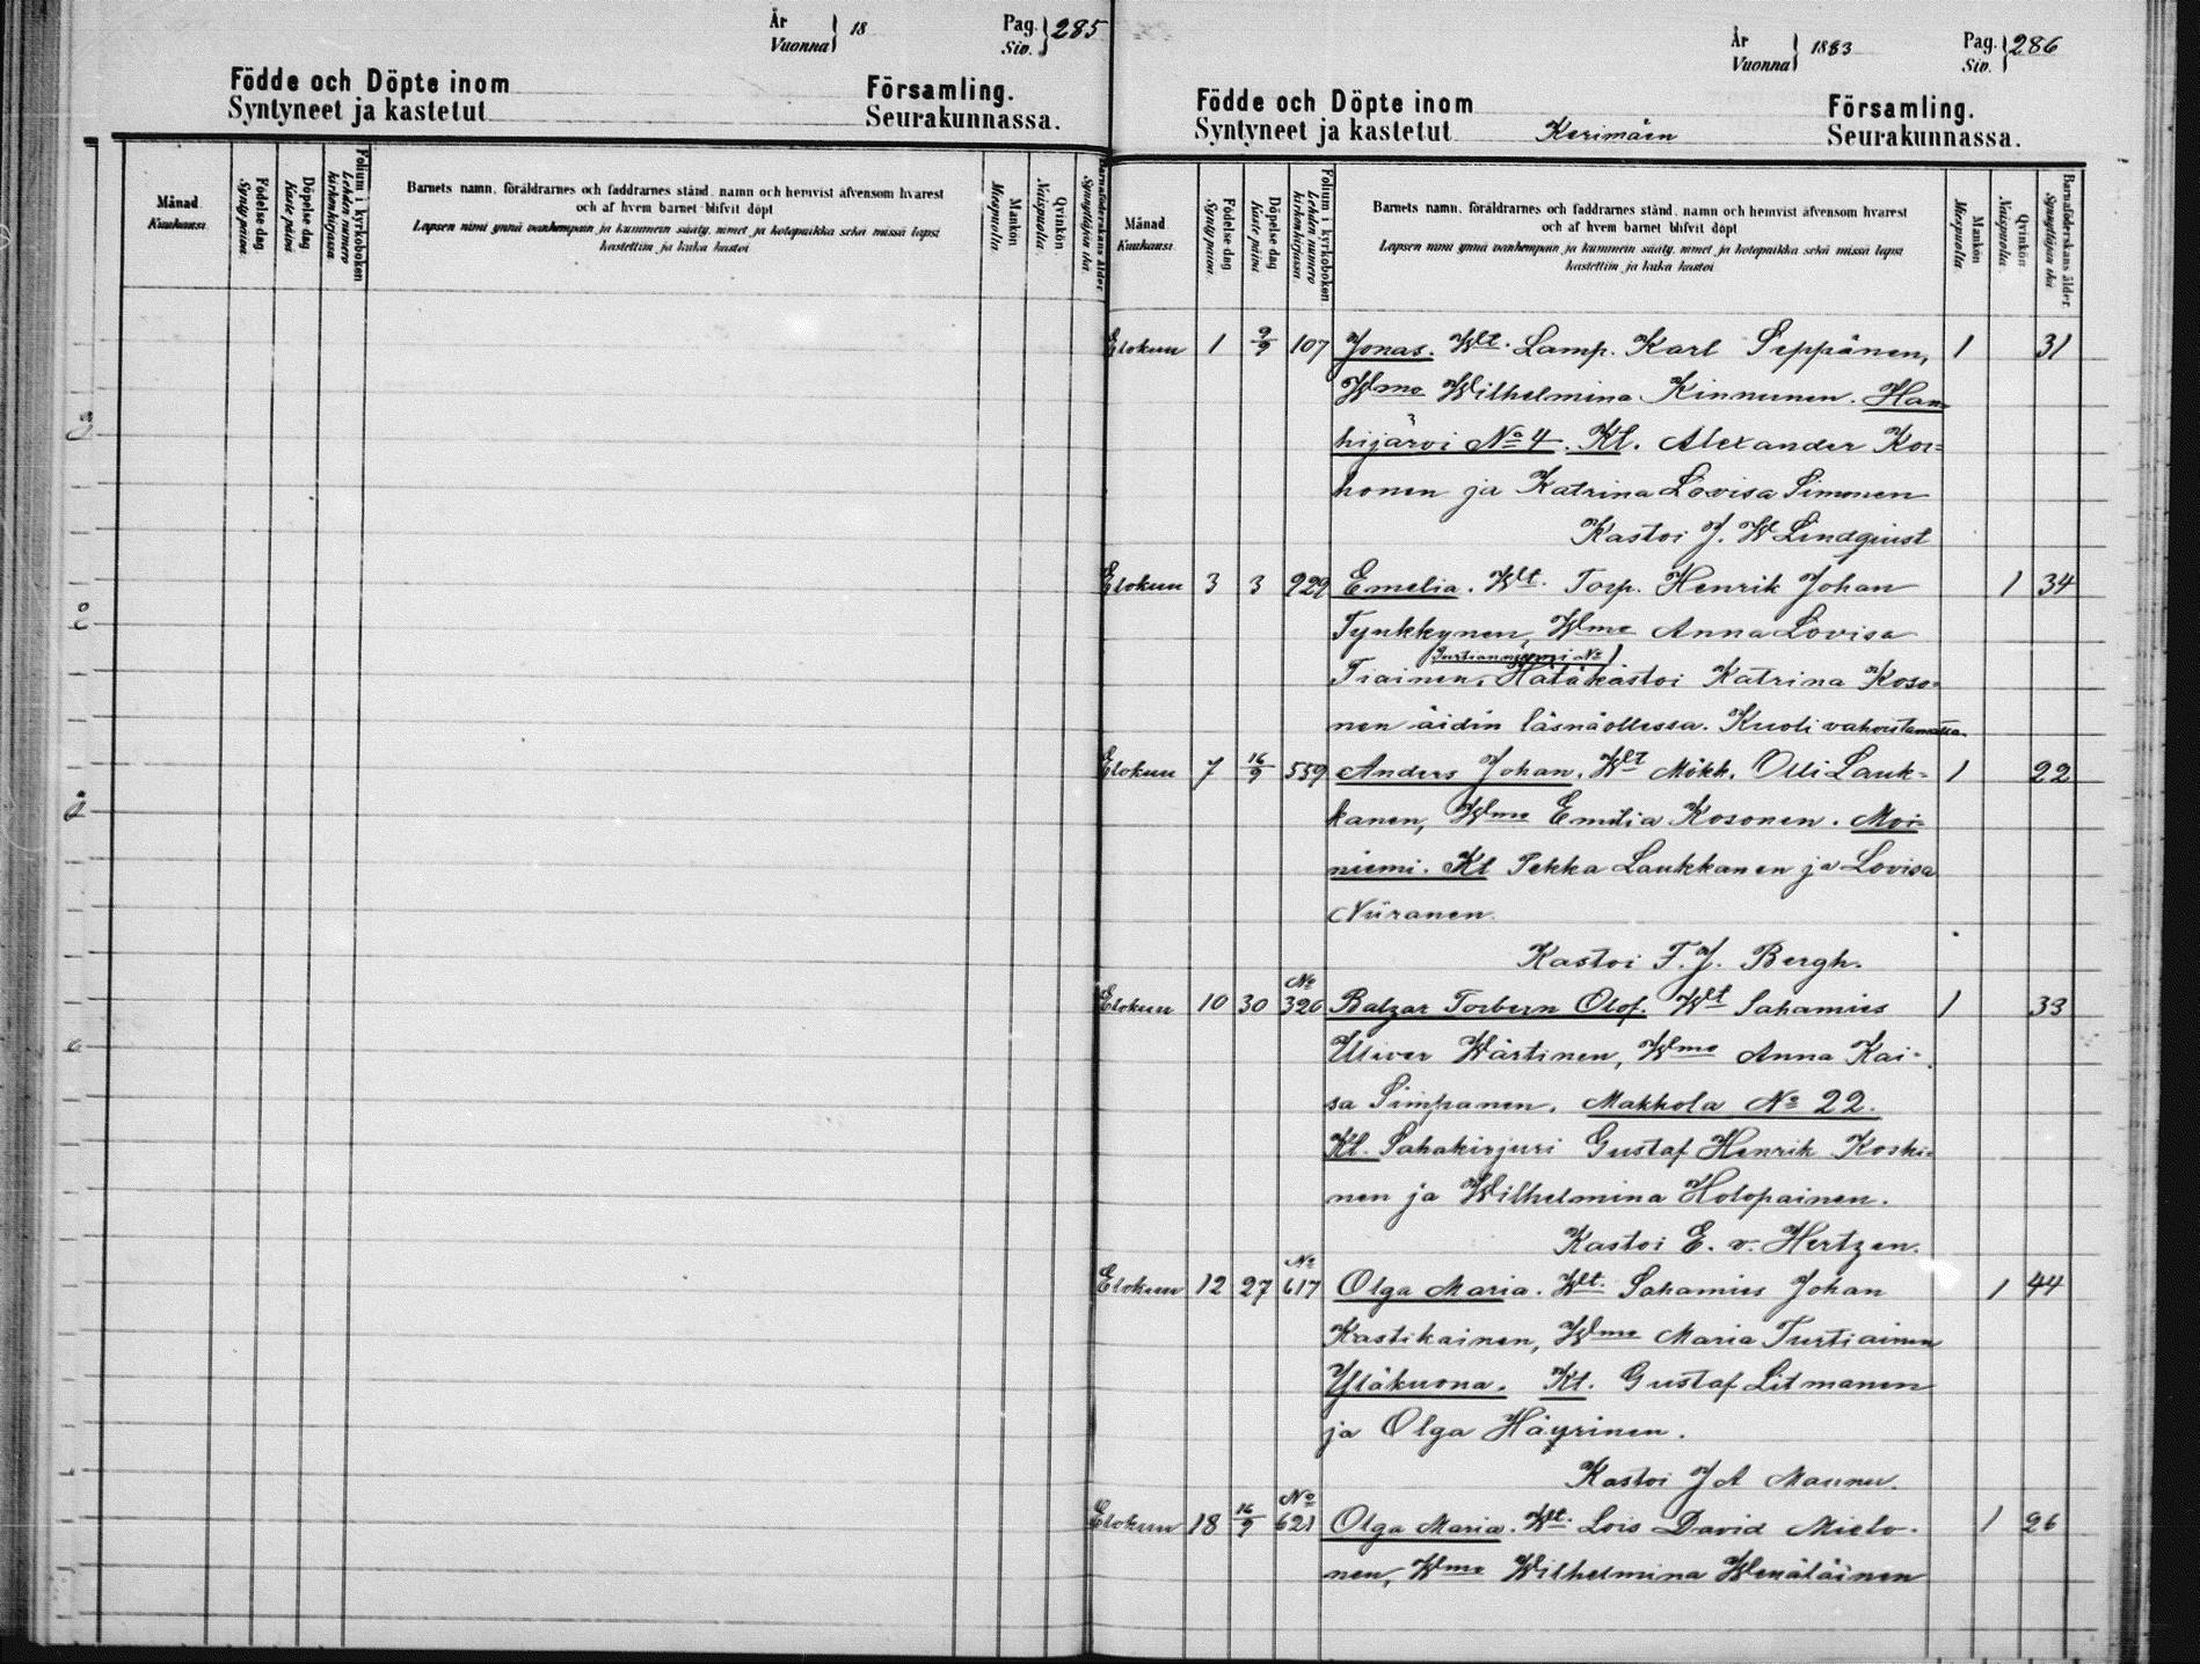 År
Vuonna } 18
Pag.
Siv. } 285
Födde och Döpte inom Församling.
Syntyneet ja kastetut Seurakunnassa.
Månad
Kuukausi.
Födelse dag
Synty päivä.
Döpelse dag
Kaste päivä
Folium i kyrkoboken
Lehden numero
kirkonkirjassa.
Barnets namn, föräldrarnes och faddrarnes stånd, namn och hemvist äfvensom hvarest
och af hvem barnet blifvit döpt
Lapsen nimi ynnä vanhempain ja kummein sääty, nimet ja kotopaikka sekä missä lapsi
kastettiin ja kuka kastoi
Mankön
Miespuolia
Qvinkön
Naispuolia.
Barnaföderskans ålder
Synnyttäjän ikä.
År
Vuonna } 1883
Pag.
Siv. } 286
Födde och Döpte inom Församling.
Syntyneet ja kastetut Kerimäen Seurakunnassa.
Månad
Kuukausi.
Födelse dag
Synty päivä.
Döpelse dag
Kaste päivä
Folium i kyrkoboken
Lehden numero
kirkonkirjassa.
Barnets namn, föräldrarnes och faddrarnes stånd, namn och hemvist äfvensom hvarest
och af hvem barnet blifvit döpt
Lapsen nimi ynnä vanhempain ja kummein sääty, nimet ja kotopaikka sekä missä lapsi
kastettiin ja kuka kastoi
Mankön
Miespuolia
Qvinkön
Naispuolia
Barnaföderskans ålder
Synnyttäjän ikä
Elokuu 1 9/9 107 Jonas. Wlt. Lamp. Karl Seppänen, 1 31
Wmo Wilhelmina Kinnunen. Han=
hijärvi No 4. Kl. Alexander Kor=
honen ja Katrina Lovisa Simonen
Kastoi J. W Lindquist
Elokuu 3 3 929 Emelia. Wlt. Torp. Henrik Johan 1 34
Tynkkynen, Wmo Anna Lovisa
No 1
Tiainen. Hätäkastoi Katrina Koso=
nen äidin läsnäollessa. Kuoli vahvistamatta.
Elokuu 7 16/9 559 Anders Johan. Wlt Mökk. Olli Lauk= 1 22
kanen, Wmo Emilia Kosonen. Moi=
niemi. Kl Pekka Laukkanen ja Lovisa
Niiranen.
Kastoi F. J. Bergh.
No
Elokuu 10 30 326 Balzar Torbern Olof. Wlt Sahamies 1 33
Uliver Wärtinen, Wmo Anna Kai=
sa Simpanen. Makkola No 22.
Kl. Sahakirjuri Gustaf Henrik Koski=
nen ja Wilhelmina Holopainen.
Kastoi E. v. Hertzen.
No
Elokuu 12 27 617 Olga Maria. Wlt. Sahamies Johan 1 44
Kastikainen, Wmo Maria Turtiainen
Yläkuona. Kl. Gustaf Litmanen
ja Olga Häyrinen.
Kastoi J A Manner.
No
Elokuu 18 16/9 621 Olga Maria. Wlt. Lois David Mielo- 1 26
nen, Wmo Wilhelmina Wenäläinen